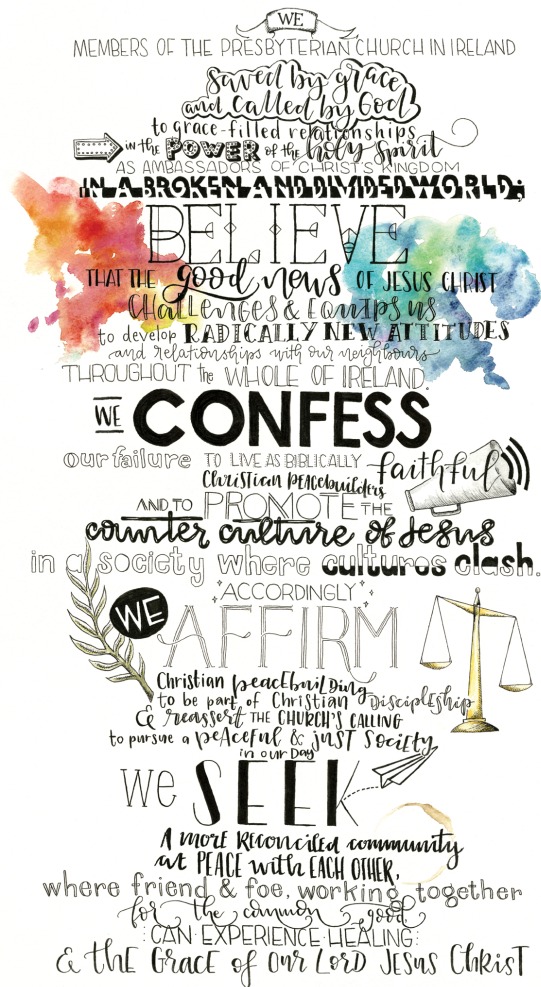 WE
MEMBERS OF THE PRESBYTERIAN CHURCH IN IRELAND
saved by grace
and called by God
to grace-filled relationships
in the POWER of the holy Spirit
AS AMBASSADORS OF CHRIST'S KINGDOM
IN A BROKEN AND DIVIDED WORLD;
BELIEVE
THAT THE good news OF JESUS CHRIST
CHALLENGES & EQUIPS US
to develop RADICALLY NEW ATTITUDES
and relationships with our neighbours
THROUGHOUT the WHOLE OF IRELAND.
WE CONFESS
our failure TO LIVE AS BIBLICALLY faithful
Christian PEACEbuilders
AND TO PROMOTE THE
counter culture of Jesus
in a society where cultures clash.
ACCORDINGLY
WE AFFIRM
Christian peacebuilding
to be part of Christian Discipleship
& reassert THE CHURCH'S CALLING
to pursue a peaceful & just society
in our day
we SEEK
A more reconciled community
at PEACE with EACH OTHER,
where friend & foe, working together
for the common good
CAN EXPERIENCE HEALING
& the Grace of Our Lord Jesus Christ